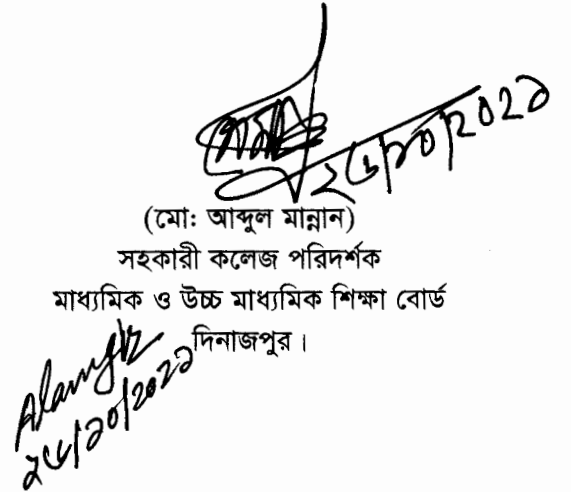 ২৬/১০/২০২১
(মো: আব্দুল মান্নান)
সহকারী কলেজ পরিদর্শক
মাধ্যমিক ও উচ্চ মাধ্যমিক শিক্ষা বোর্ড
দিনাজপুর।
২৬/১০/২০২১